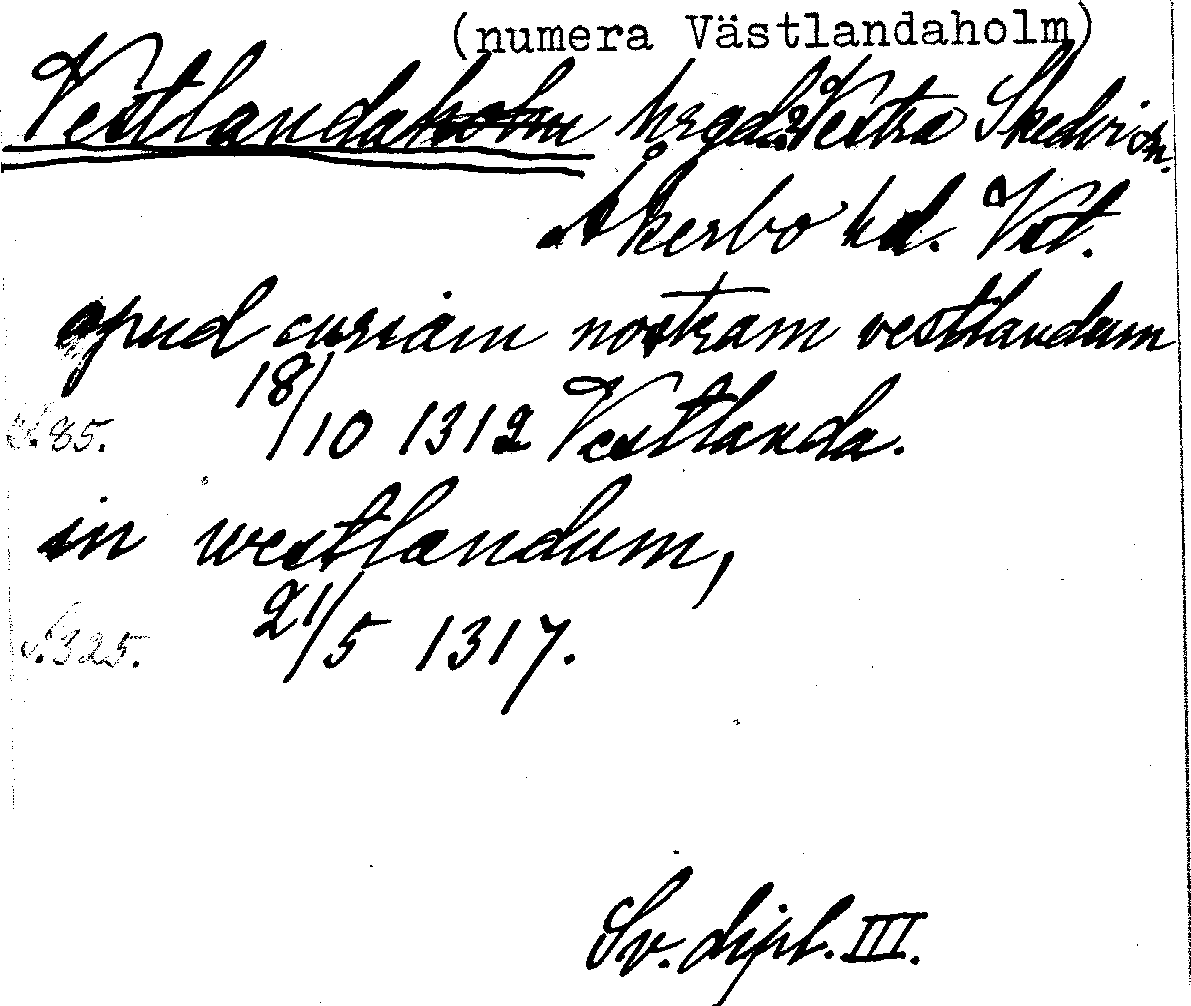 (numera Västlandaholm)
Vestlandaholm hrgd. Vestra Skedvi sn.
Åkerbo hd. Vstl.
apud curiam nostram vestlandum
18/10 1312 Vestlanda.
S. 85.
in westlandum,
21/5 1317.
S. 325.
Sv. dipl. III.